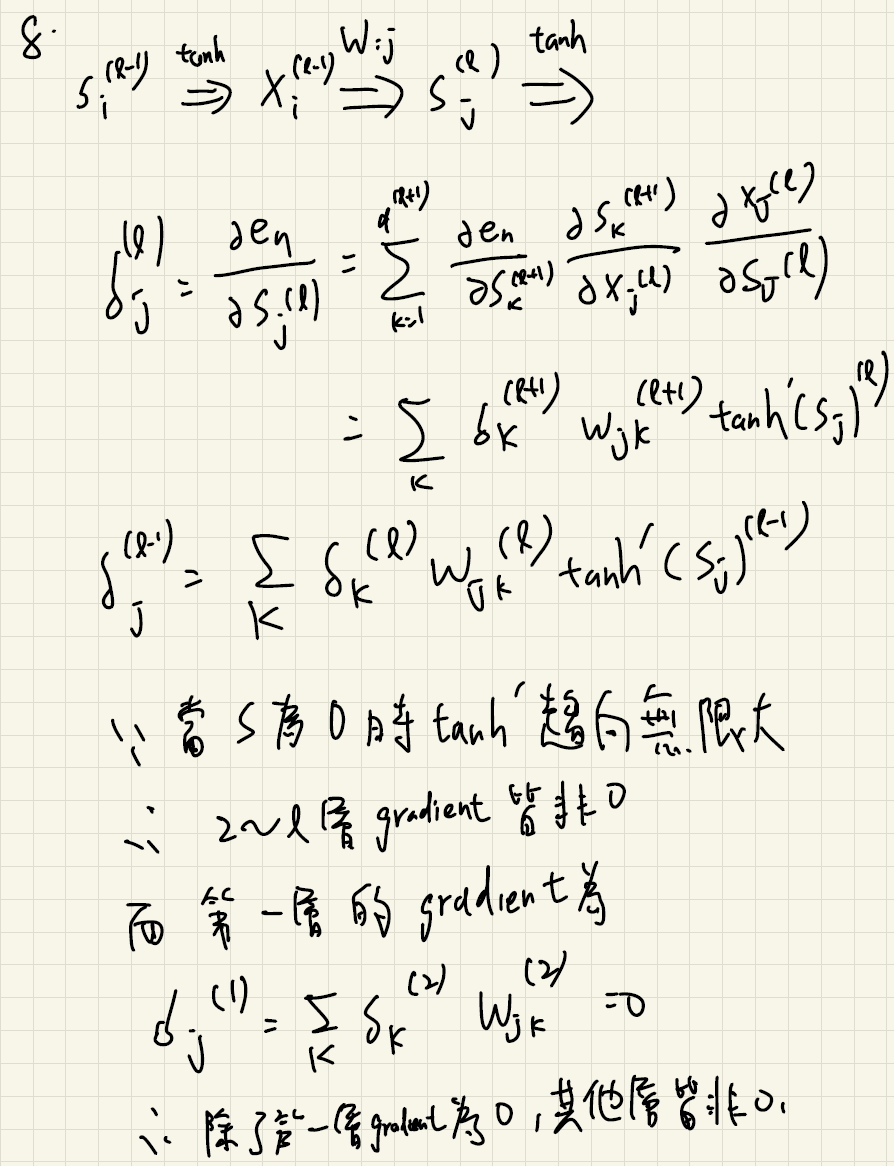 8.
S_i^(l-1) tanh ⇒ X_i^(l-1) W_ij ⇒ S_j^(l) tanh ⇒
δ_j^(l) = ∂e_n / ∂S_j^(l) = Σ_{k=1}^{d^(l+1)} ∂e_n / ∂S_k^(l+1) ∂S_k^(l+1) / ∂X_j^(l) ∂X_j^(l) / ∂S_j^(l)
= Σ_k δ_k^(l+1) W_jk^(l+1) tanh'(S_j)^(l)
δ_j^(l-1) = Σ_k δ_k^(l) W_jk^(l) tanh'(S_j)^(l-1)
∵ 當 S 為 0 時 tanh' 趨向無限大
∴ 2~l 層 gradient 皆非 0
而 第一層 的 gradient 為
δ_j^(1) = Σ_k δ_k^(2) W_jk^(2) = 0
∴ 除了第一層 gradient 為 0,其他層皆非 0.